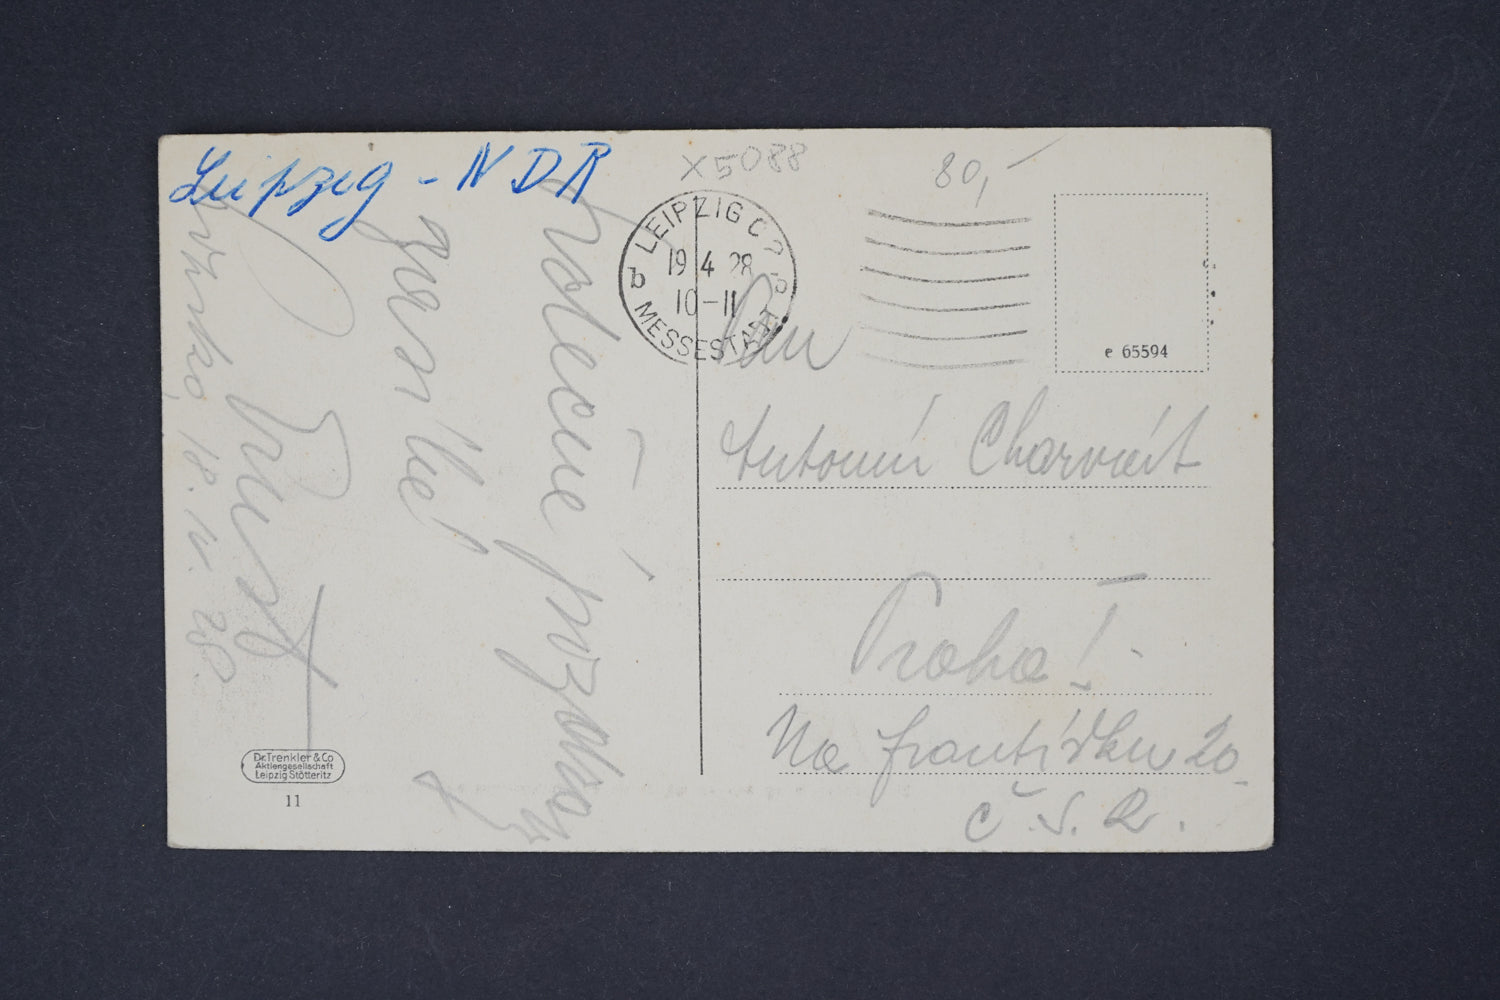 Leipzig - NDR
X5088
80,-
LEIPZIG C 2
19 4 28
10-11
b b
MESSESTADT
e 65594
Pan
Antonín Charvát
Praha I.
Na františku 20
Č. S. R.
Srdečné pozdravy
18. IV. 28.
Dr. Trenkler & Co
Aktiengesellschaft
Leipzig Stötteritz
11